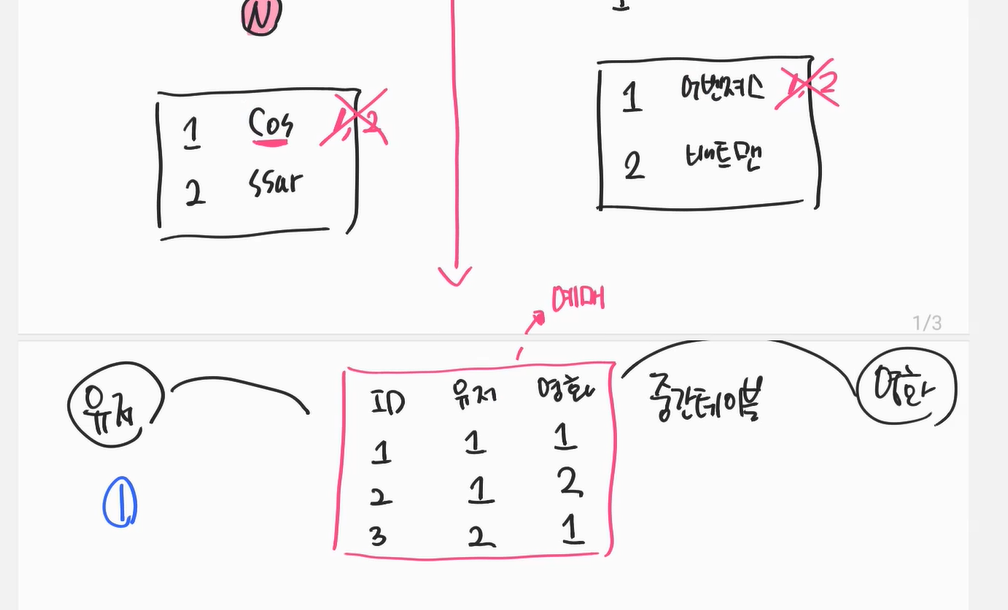 N
1 Cos 1, 2
2 ssar
1 어벤져스 1, 2
2 배트맨
예매
1/3
유저
ID 유저 영화
1 1 1
2 1 2
3 2 1
중간테이블
영화
1